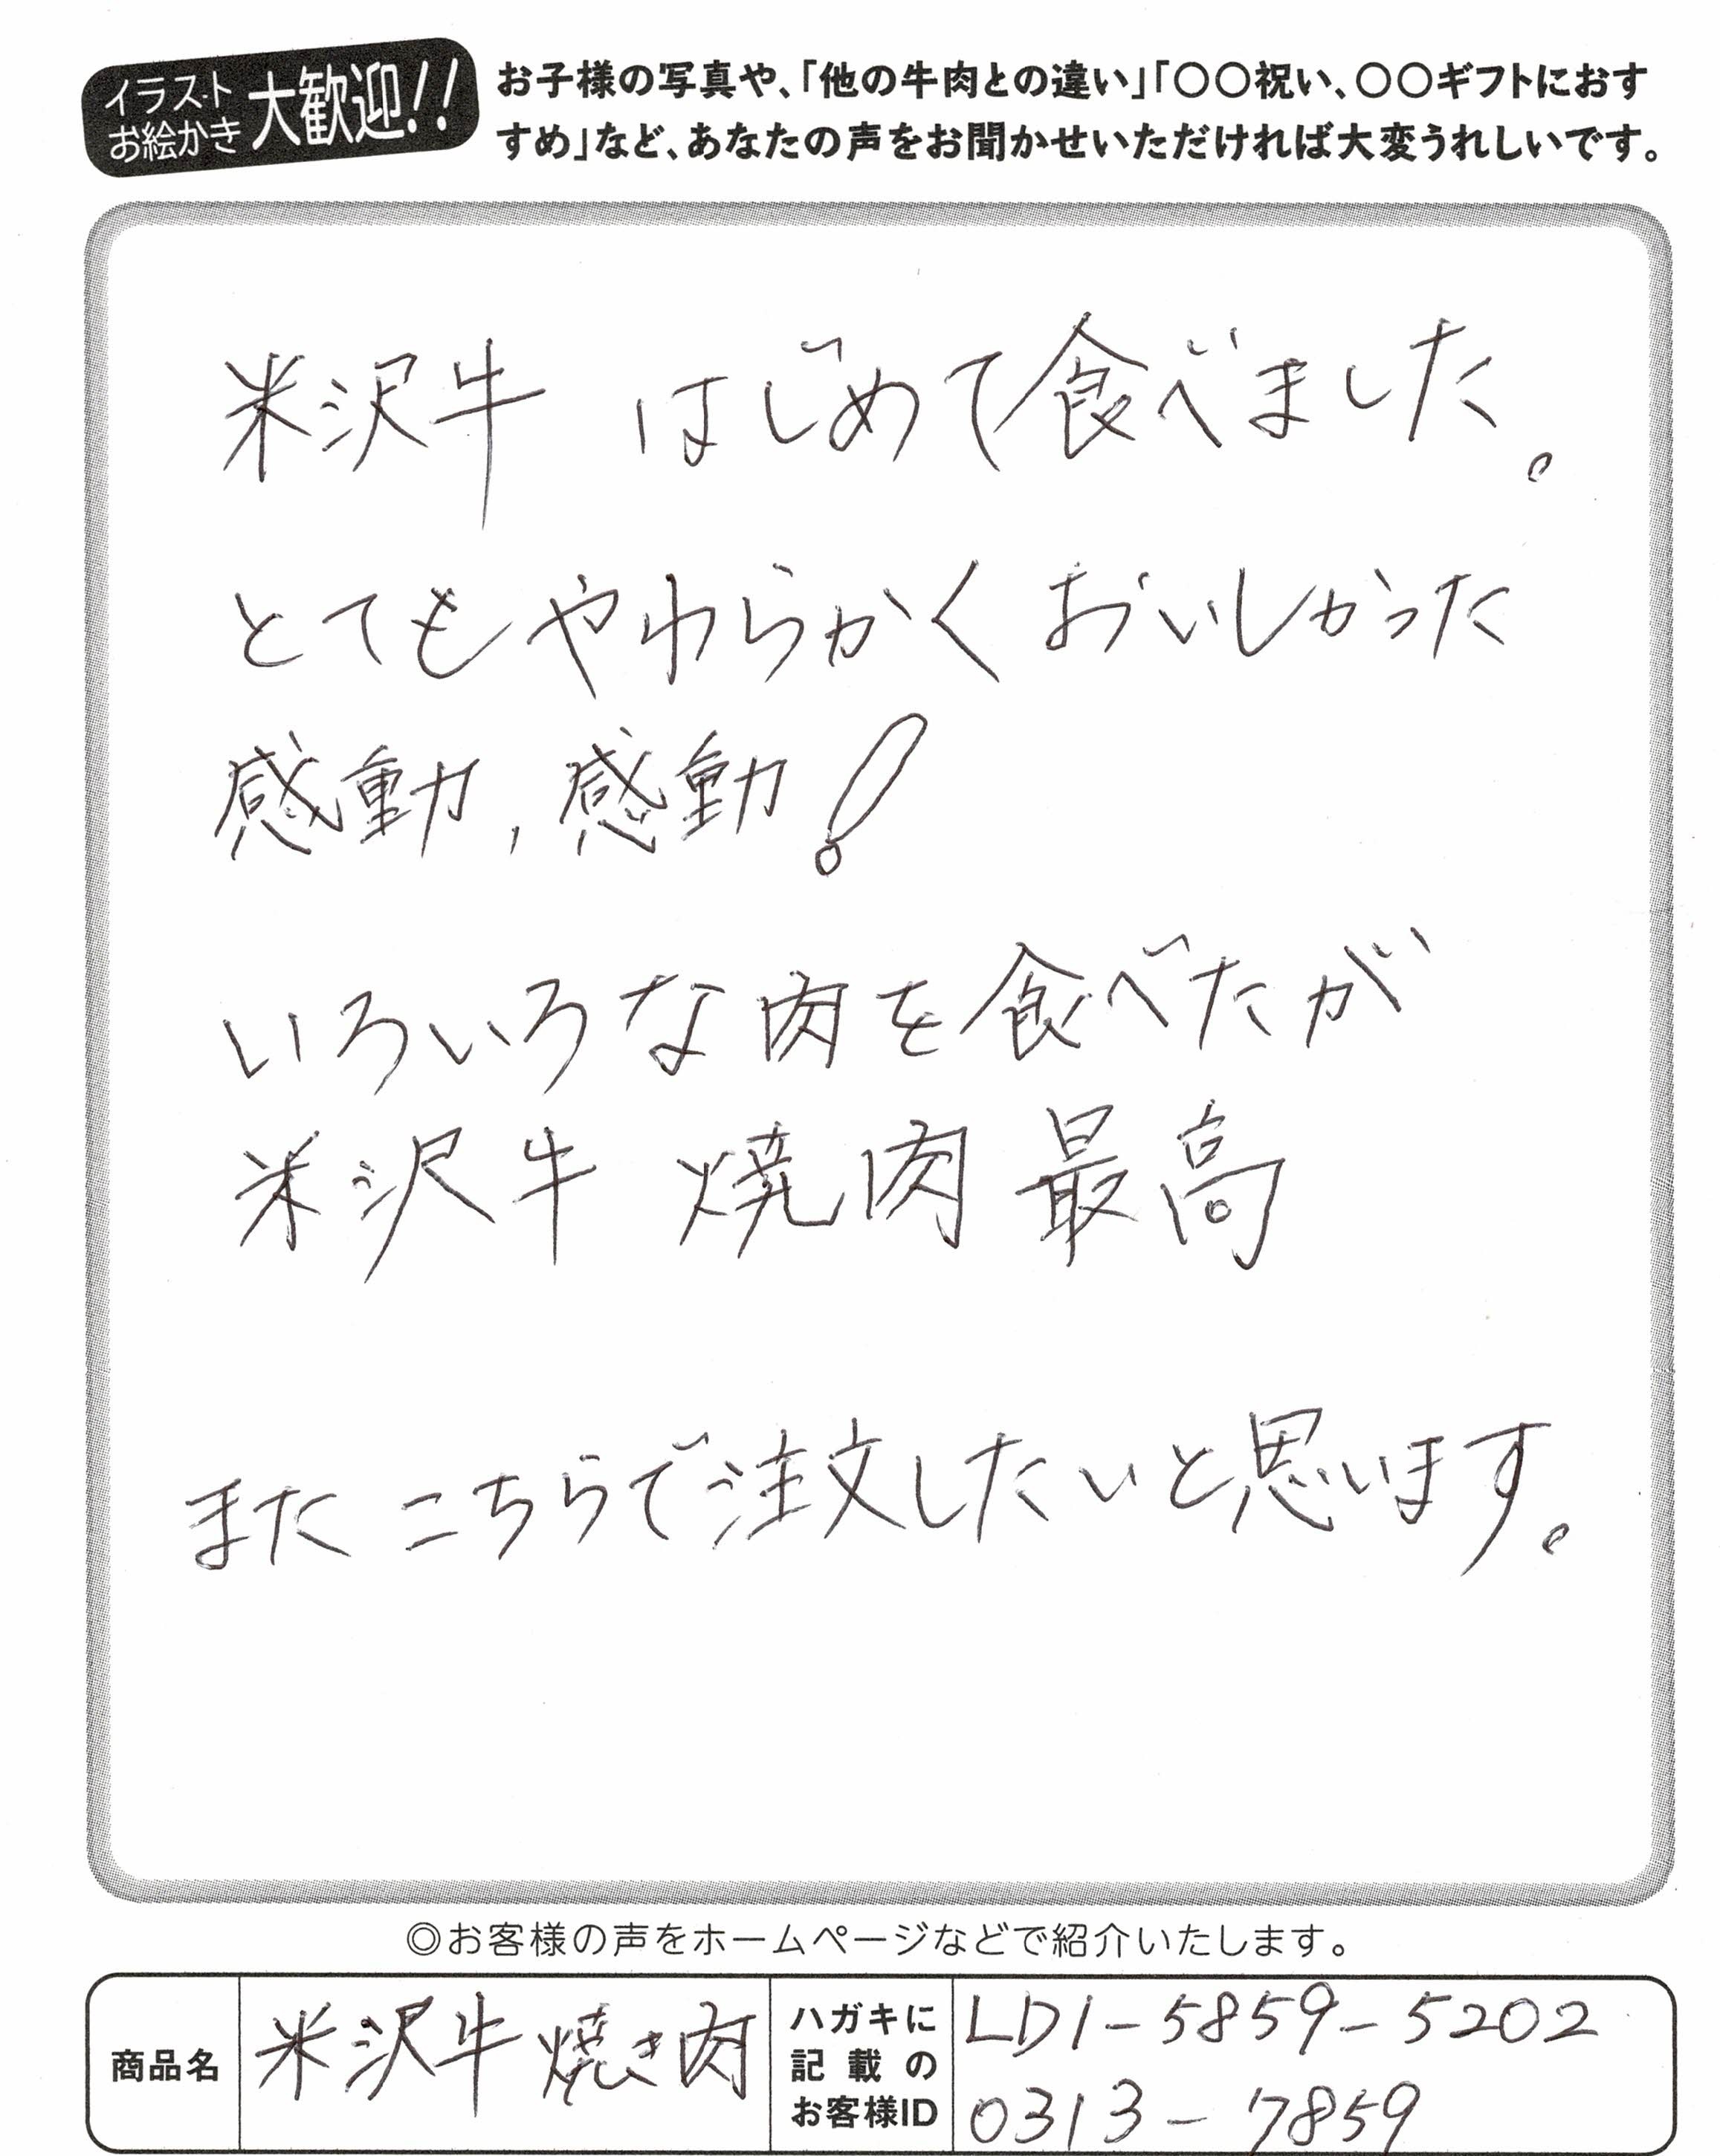 イラスト
お絵かき
大歓迎!!
お子様の写真や、「他の牛肉との違い」「〇〇祝い、〇〇ギフトにおす
すめ」など、あなたの声をお聞かせいただければ大変うれしいです。
米沢牛 はじめて食べました。
とてもやわらかく おいしかった
感動,感動!
いろいろな肉を食べたが
米沢牛 焼肉 最高
また こちらで注文したいと思います。
◎お客様の声をホームページなどで紹介いたします。
商品名
米沢牛焼き肉
ハガキに
記載の
お客様ID
LD1-5859-5202
0313-7859